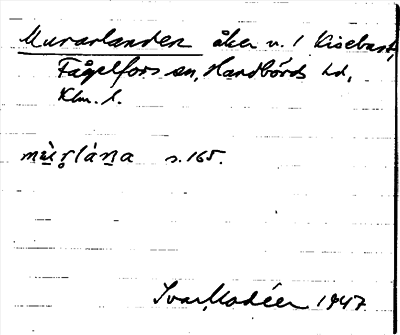 Murarlanden åker u. / Kisebast,
Fågelfors sn, Handbörds hd,
Klm. l.
s. 165.
Ivar Modéer 1947.